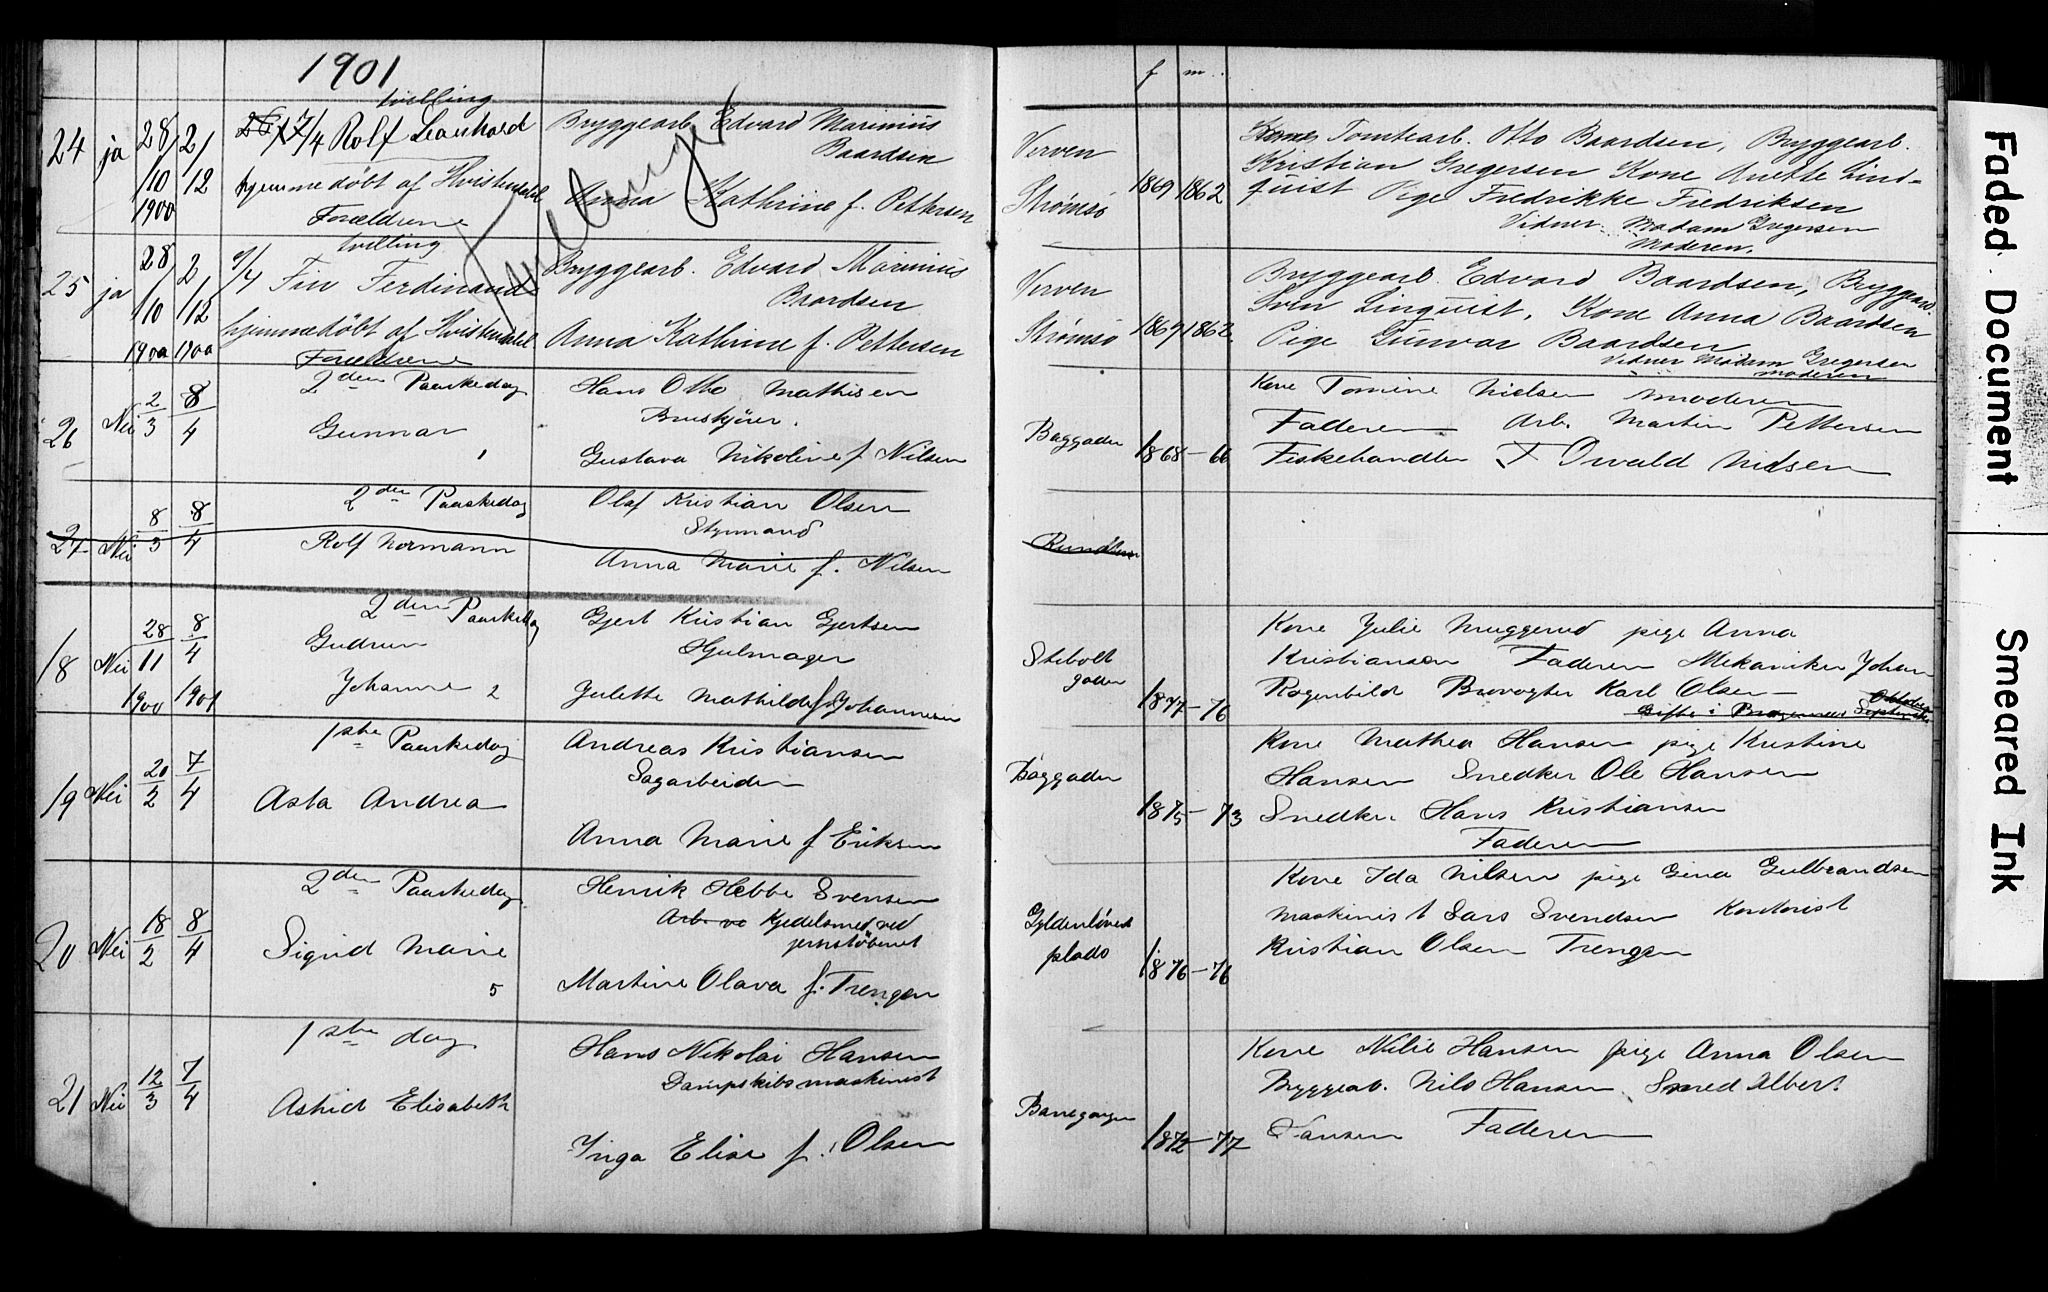 1901
f m
24 ja 28/10 1900 2/12
7/4 Rolf Leonhard
tvilling
hjemmedøbt af Hvistendal
Forældrene
Tvillinger
Bryggearb. Edvard Marinius
Baardsen
Anna Kathrine f. Pettersen
Verven
Strømsø
1869 1862
Tomtearb. Otto Baardsen, Bryggearb.
Kristian Gregersen Kone Anette Lind-
quist Pige Fredrikke Fredriksen
Vidner Madam Gregersen
Moderen.
25 ja 28/10 1900 2/12 1900
tvilling
9/4 Fin Ferdinand
hjemmedøbt af Hvistendal
Forældrene
Bryggearb. Edvard Marinius
Baardsen
Anna Kathrine f. Pettersen
Verven
Strømsø
1869 1862
Bryggearb. Edvard Baardsen, Bryggearb.
Sven Linquist, Kone Anna Baardsen
Pige Gunvar Baardsen
Vidner Madam Gregersen
Moderen
26 Nei 2/3 8/4
2den Paaskedag
Gunnar
1
Hans Otto Mathisen
Bruskjører.
Gustava Nikoline f Nilsen
Baggaden
1868-66
Kone Tomine Nielsen Moderen
Faderen Arb. Martin Pettersen
Fiskehandler Oswald Nielsen
27 Nei 8/3 8/4
2den Paaskedag
Rolf Normann
Olaf Kristian Olsen
Styrmand
Anna Marie f. Nilsen
18 Nei 28/11 1900 8/4 1901
2den Paaskedag
Gudrun
Johanne 2
Gjert Kristian Gjertsen
Hjulmager
Julette Mathilde f Johannesen
Stibolt
gaden
1877-76
Kone Julie Muggerud pige Anna
Kristiansen Faderen Mekaniker Johan
Rogenbild Brovogter Karl Olsen
Oktober
Gifte i Bragernes September
19 Nei 20/2 7/4
1ste Paaskedag
Asta Andrea
Andreas Kristiansen
Sagarbeider
Anna Marie f Eriksen
Baggaden
1875-73
Kone Mathea Hansen pige Kristine
Hansen Snedker Ole Hansen
Snedker Hans Kristiansen
Faderen
20 Nei 18/2 8/4
2den Paaskedag
Sigrid Marie
5
Henrik Hebbe Svensen
Arb. ve Kjedelsmed ved
jernstøberiet
Martine Olava f. Trengen
Gyldenløves
plads
1876-76
Kone Ida Nilsen pige Gina Gulbrandsen
Maskinist Lars Svendsen Kontorist
Kristian Olsen Trengen
21 Nei 12/3 7/4
1ste dag
Astrid Elisabeth
Hans Nikolai Hansen
Dampskibsmaskinist
Inga Elise f. Olsen
1872-77
Kone Nilie Hansen pige Anna Olsen
Bryggearb. Nils Hansen Smed Albert
Hansen Faderen
Faded Document
Smeared Ink